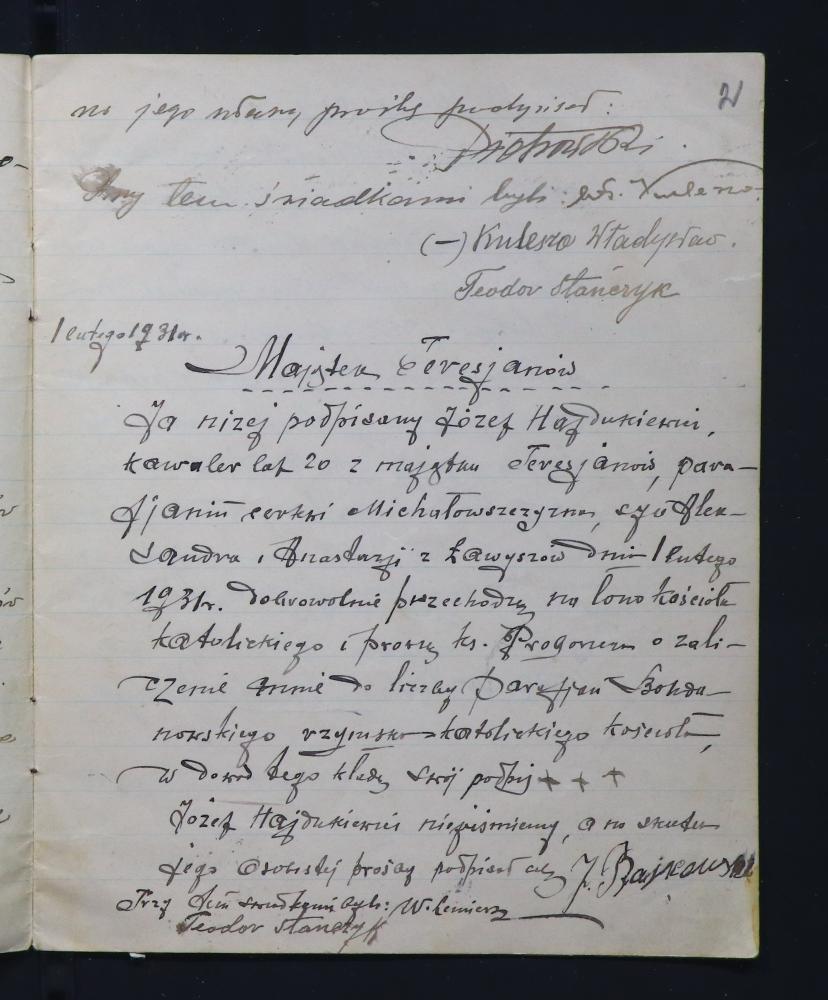 2
na jego własną prośbę podpisał:
Piotrowski
Przy tem świadkami byli: Wł. Kulesza
(-) Kulesza Władysław.
Teodor Stańczyk
1 lutego 1931 r.
Majątek Teresjanów
Ja niżej podpisany Józef Hajdukiewicz,
kawaler lat 20 z majątku Teresjanów, para-
fjanin cerkwi Michałowszczyzna, syn Alek-
sandra i Anastazji z Ławyszów dnia 1 lutego
1931 r. dobrowolnie przechodzę na łono kościoła
katolickiego i proszę ks. o zali-
czenie mnie do liczby parafjan Bohda-
nowskiego rzymsko-katolickiego kościoła,
w dowód tego kładę swój podpis + + +
Józef Hajdukiewicz niepiśmienny, a na skutek
jego osobistej prośby podpisał się J. Bajkowski
Przy tem świadkami byli:
Teodor Stańczyk